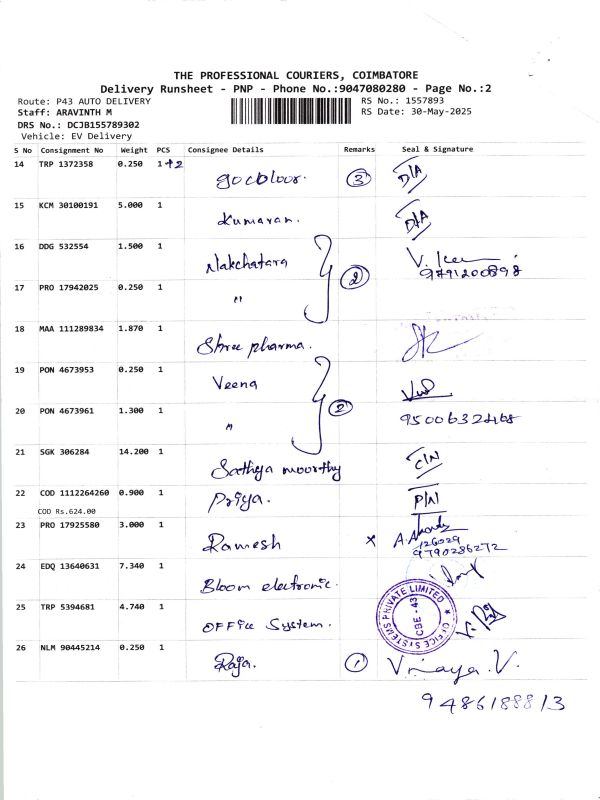 THE PROFESSIONAL COURIERS, COIMBATORE
Delivery Runsheet - PNP - Phone No.:9047080280 - Page No.:2
Route: P43 AUTO DELIVERY
RS No.: 1557893
Staff: ARAVINTH M
RS Date: 30-May-2025
DRS No.: DCJB155789302
Vehicle: EV Delivery
S No Consignment No Weight PCS Consignee Details Remarks Seal & Signature
14 TRP 1372358 0.250 1+2 gocbloor. 3 D/A
15 KCM 30100191 5.000 1 Kumaran. D/A
16 DDG 532554 1.500 1 Nakchatara 2 V.
9791200898
17 PRO 17942025 0.250 1 "
18 MAA 111289834 1.870 1 Shree pharma.
19 PON 4673953 0.250 1 Veena 2
20 PON 4673961 1.300 1 " 9500632468
21 SGK 306284 14.200 1 Sathya moorthy C/N
22 COD 1112264260 0.900 1 Priya. P/N
COD Rs.624.00
23 PRO 17925580 3.000 1 Ramesh x A.
126029
9790286272
24 EDQ 13640631 7.340 1 Bloom electronic.
25 TRP 5394681 4.740 1 OFFice System.
OFFICE SYSTEMS PRIVATE LIMITED
CBE - 43
26 NLM 90445214 0.250 1 Raja. 1 Vijaya.V.
9486188813